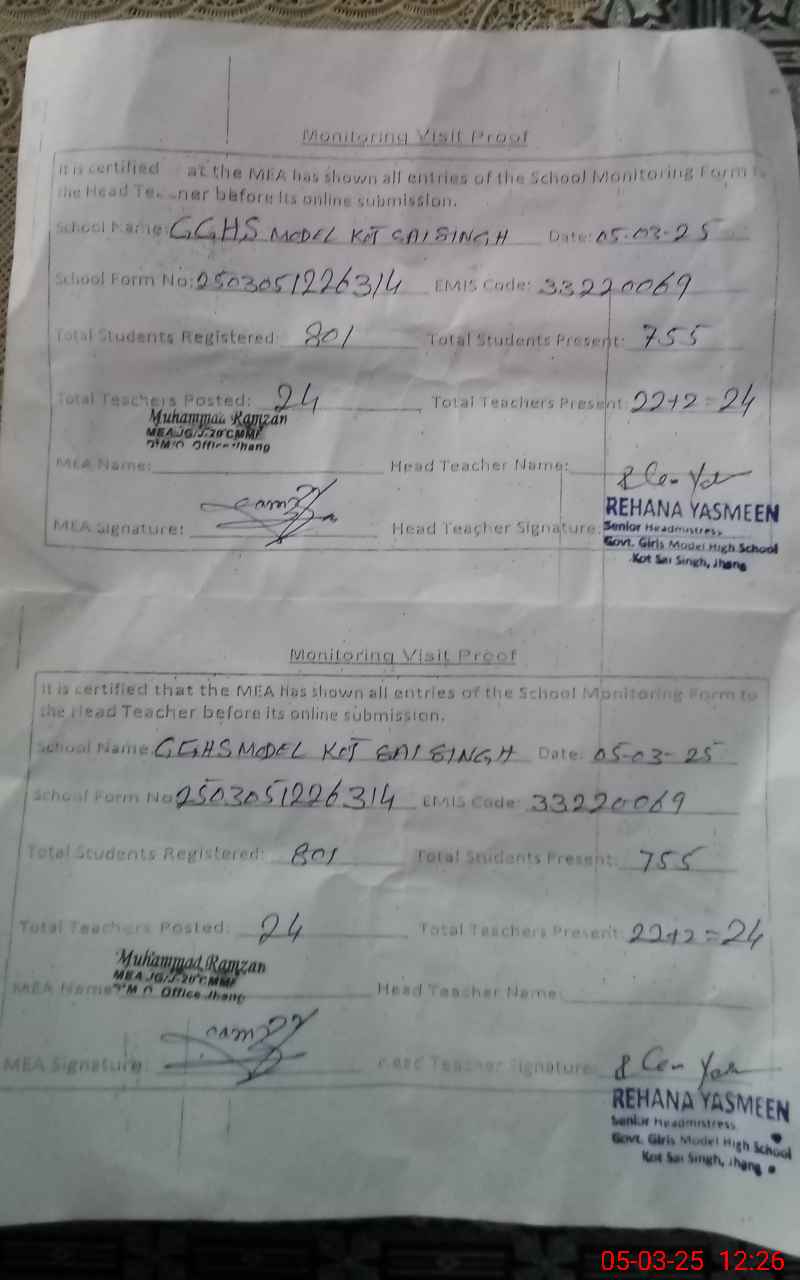 Monitoring Visit Proof
It is certified at the MEA has shown all entries of the School Monitoring Form to
the Head Te ner before its online submission.
School Name: GGHS MODEL KOT SAI SINGH Date: 05-03-25
School Form No: 2503051226314 EMIS Code: 33220069
Total Students Registered: 801 Total Students Present: 755
Total Teachers Posted: 24 Total Teachers Present: 22+2=24
Muhammad Ramzan
MEA JG/J-20 CMMF
Office Jhang
MEA Name: Head Teacher Name:
MEA Signature: Head Teacher Signature:
REHANA YASMEEN
Senior Headmistress
Govt. Girls Model High School
Kot Sai Singh, Jhang
Monitoring Visit Proof
It is certified that the MEA has shown all entries of the School Monitoring Form to
the Head Teacher before its online submission.
School Name: GGHS MODEL KOT SAI SINGH Date: 05-03-25
School Form No 2503051226314 EMIS Code: 33220069
Total Students Registered: 801 Total Students Present: 755
Total Teachers Posted: 24 Total Teachers Present: 22+2=24
Muhammad Ramzan
MEA JG/J-20 CMMF
Office Jhang
MEA Name Head Teacher Name:
MEA Signature: Head Teacher Signature:
REHANA YASMEEN
Senior Headmistress
Govt. Girls Model High School
Kot Sai Singh, Jhang
05-03-25 12:26